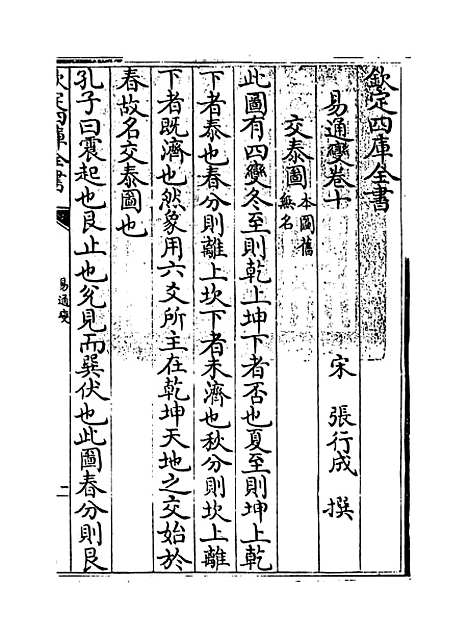 欽定四庫全書
易通變卷十
宋 張行成 撰
交泰圖 本圖舊無名
此圖有四變冬至則乾上坤下者否也夏至則坤上乾
下者泰也春分則離上坎下者未濟也秋分則坎上離
下者既濟也然象用六爻所主在乾坤天地之交始於
春故名交泰圖也
孔子曰震起也艮止也兊見而巽伏也此圖春分則艮
欽定四庫全書
易通變
二